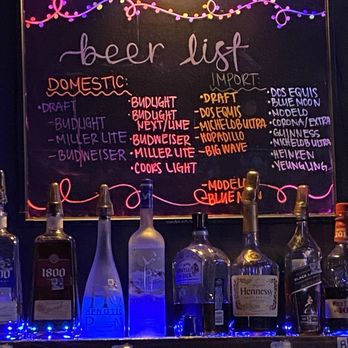 beer list
DOMESTIC:
• DRAFT
- BUDLIGHT
- MILLER LITE
- BUDWEISER
• BUDLIGHT
• BUDLIGHT
NEXT/LIME
• BUDWEISER
• MILLER LITE
• COORS LIGHT
IMPORT
• DRAFT
- DOS EQUIS
- MICHELOB ULTRA
- NOPADILLO
- BIG WAVE
- MODEL
- BLUE
• DOS EQUIS
• BLUE MOON
• MODELO
• CORONA/EXTRA
• GUINNESS
• MICHELOB ULTRA
• HEINKEN
• YEUNGLING
1800
HPNOTIQ
Hennessy
BLACK